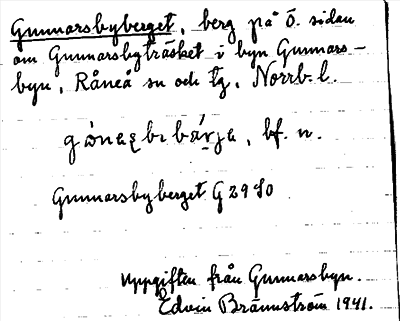 Gunnarsbyberget, berg på Ö. sidan
om Gunnarsbyträsket i byn Gunnars-
byn, Råneå sn och tg, Norrb. l.
bf. n.
Gunnarsbyberget G 29 SO
Uppgiften från Gunnarsbyn.
Edvin Brännström 1941.